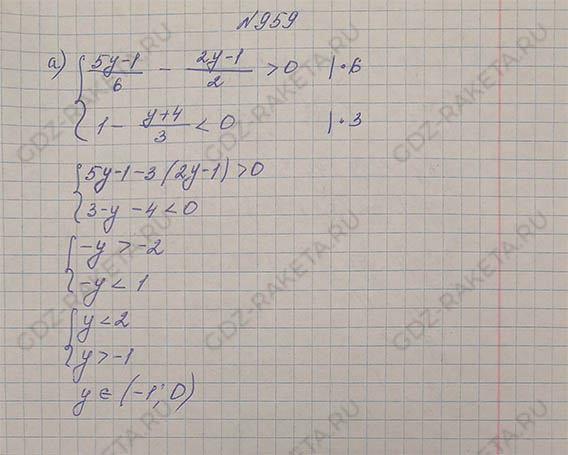 №959
а) { (5y-1)/6 - (2y-1)/2 > 0 |·6
1 - (y+4)/3 < 0 |·3
{ 5y-1-3(2y-1)>0
3-y-4<0
{ -y > -2
-y < 1
{ y < 2
y > -1
y ∈ (-1; 0)
GDZ-RAKETA.RU
GDZ-RAKETA.RU
GDZ-RAKETA.RU
GDZ-RAKETA.RU
GDZ-RAKETA.RU
GDZ-RAKETA.RU